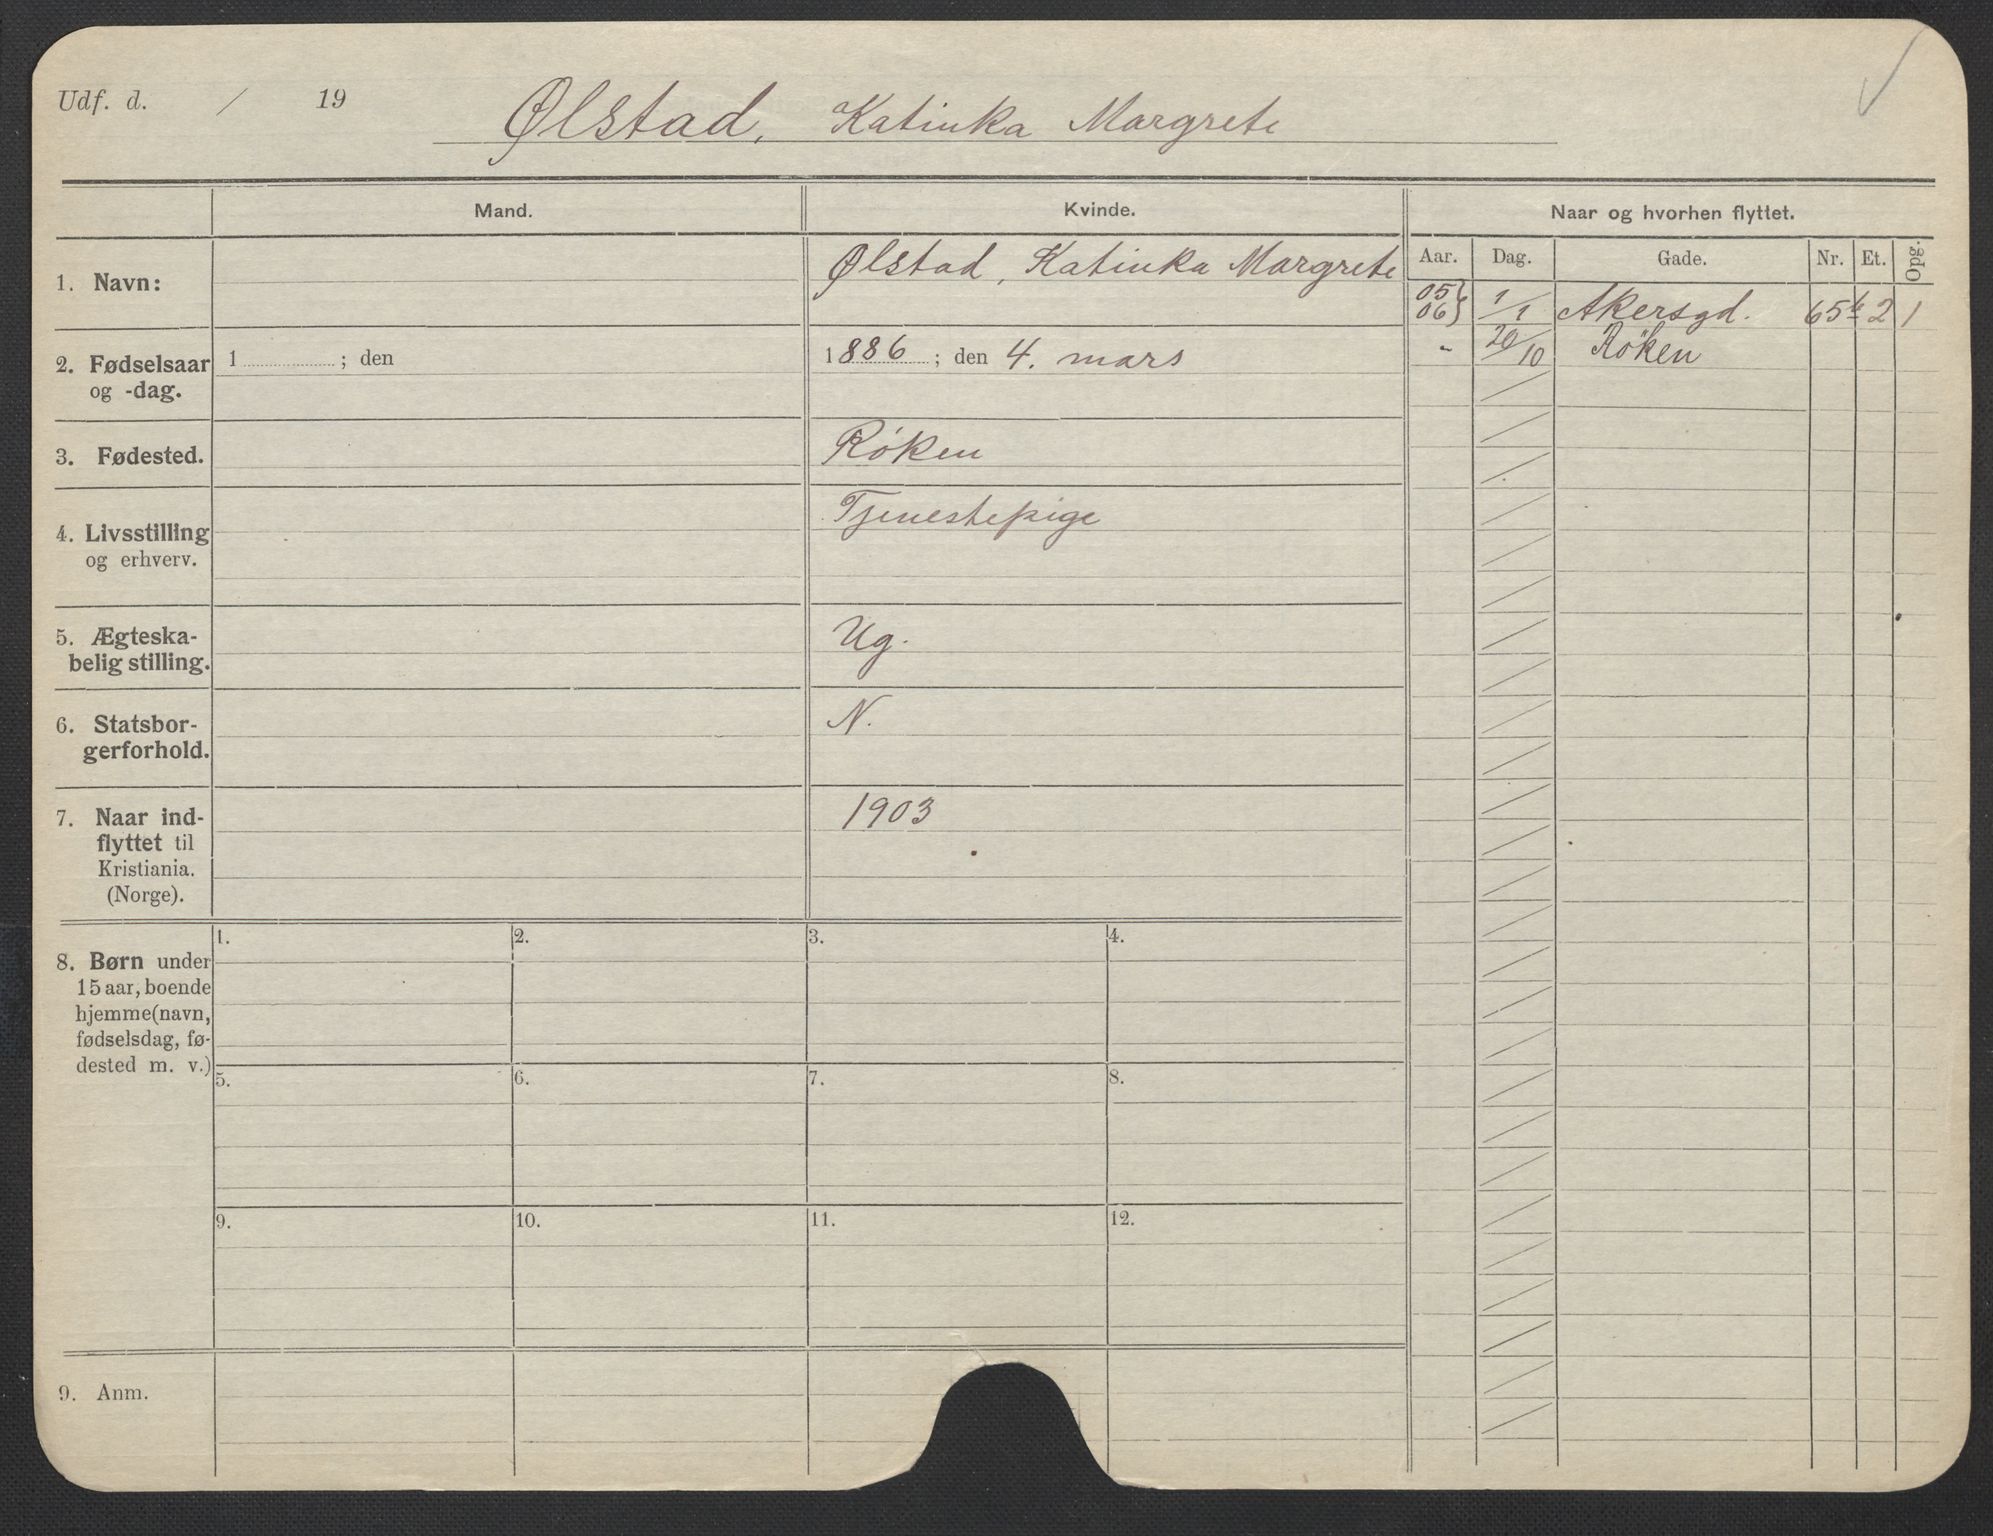 Udf. d. / 19
Ølstad, Katinka Margrete
Mand.
Kvinde.
Naar og hvorhen flyttet.
Aar. Dag. Gade. Nr. Et. Opg.
1. Navn:
Ølstad, Katinka Margrete
05 } 1/1 Akersgd. 65 2 1
06 }
" 20/10 Röken
2. Fødselsaar
og -dag.
1 ; den
1886 ; den 4. mars
3. Fødested.
Røken
4. Livsstilling
og erhverv.
Tjenestepige
5. Ægteska-
belig stilling.
Ug.
6. Statsbor-
gerforhold.
N.
7. Naar ind-
flyttet til
Kristiania.
(Norge).
1903
8. Børn under
15 aar, boende
hjemme (navn,
fødselsdag, fø-
dested m. v.)
1. 2. 3. 4.
5. 6. 7. 8.
9. 10. 11. 12.
9. Anm.